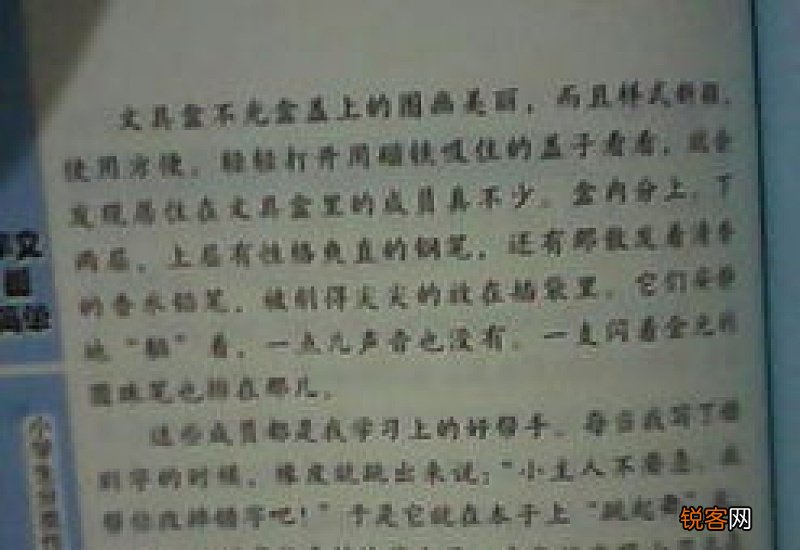 文具盒不光盒盖上的图画美丽，而且样式新颖，
使用方便。轻轻打开用磁铁吸住的盖子看看，就会
发现居住在文具盒里的成员真不少。盒内分上、下
两层，上层有性格爽直的钢笔，还有那散发着清香
的香水铅笔，被削得尖尖的放在插袋里。它们安静
地“躺”着，一点儿声音也没有。一支闪着金光的
圆珠笔也排在那儿。
这些成员都是我学习上的好帮手。每当我写了错
别字的时候，橡皮就跳出来说：“小主人不要急，我
帮你找掉错字吧！”于是它就在本子上“跳起
作文
简单
小学生分类作
锐客网